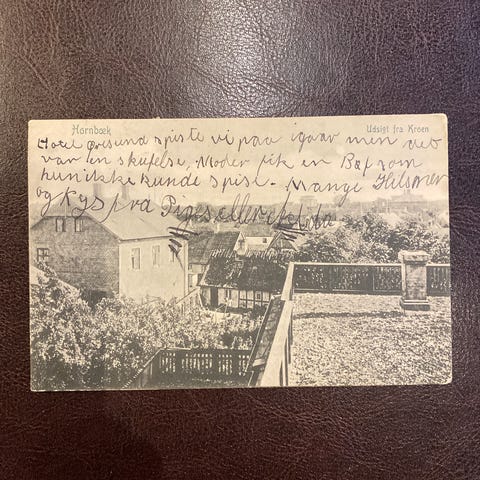 Hornbæk Udsigt fra Kroen
Hotel øresund spiste vi paa igaar men det
var en skufelse, Moder fik en Bøf som
hun ikke kunde spise. Mange Hilsner
og Kys fra